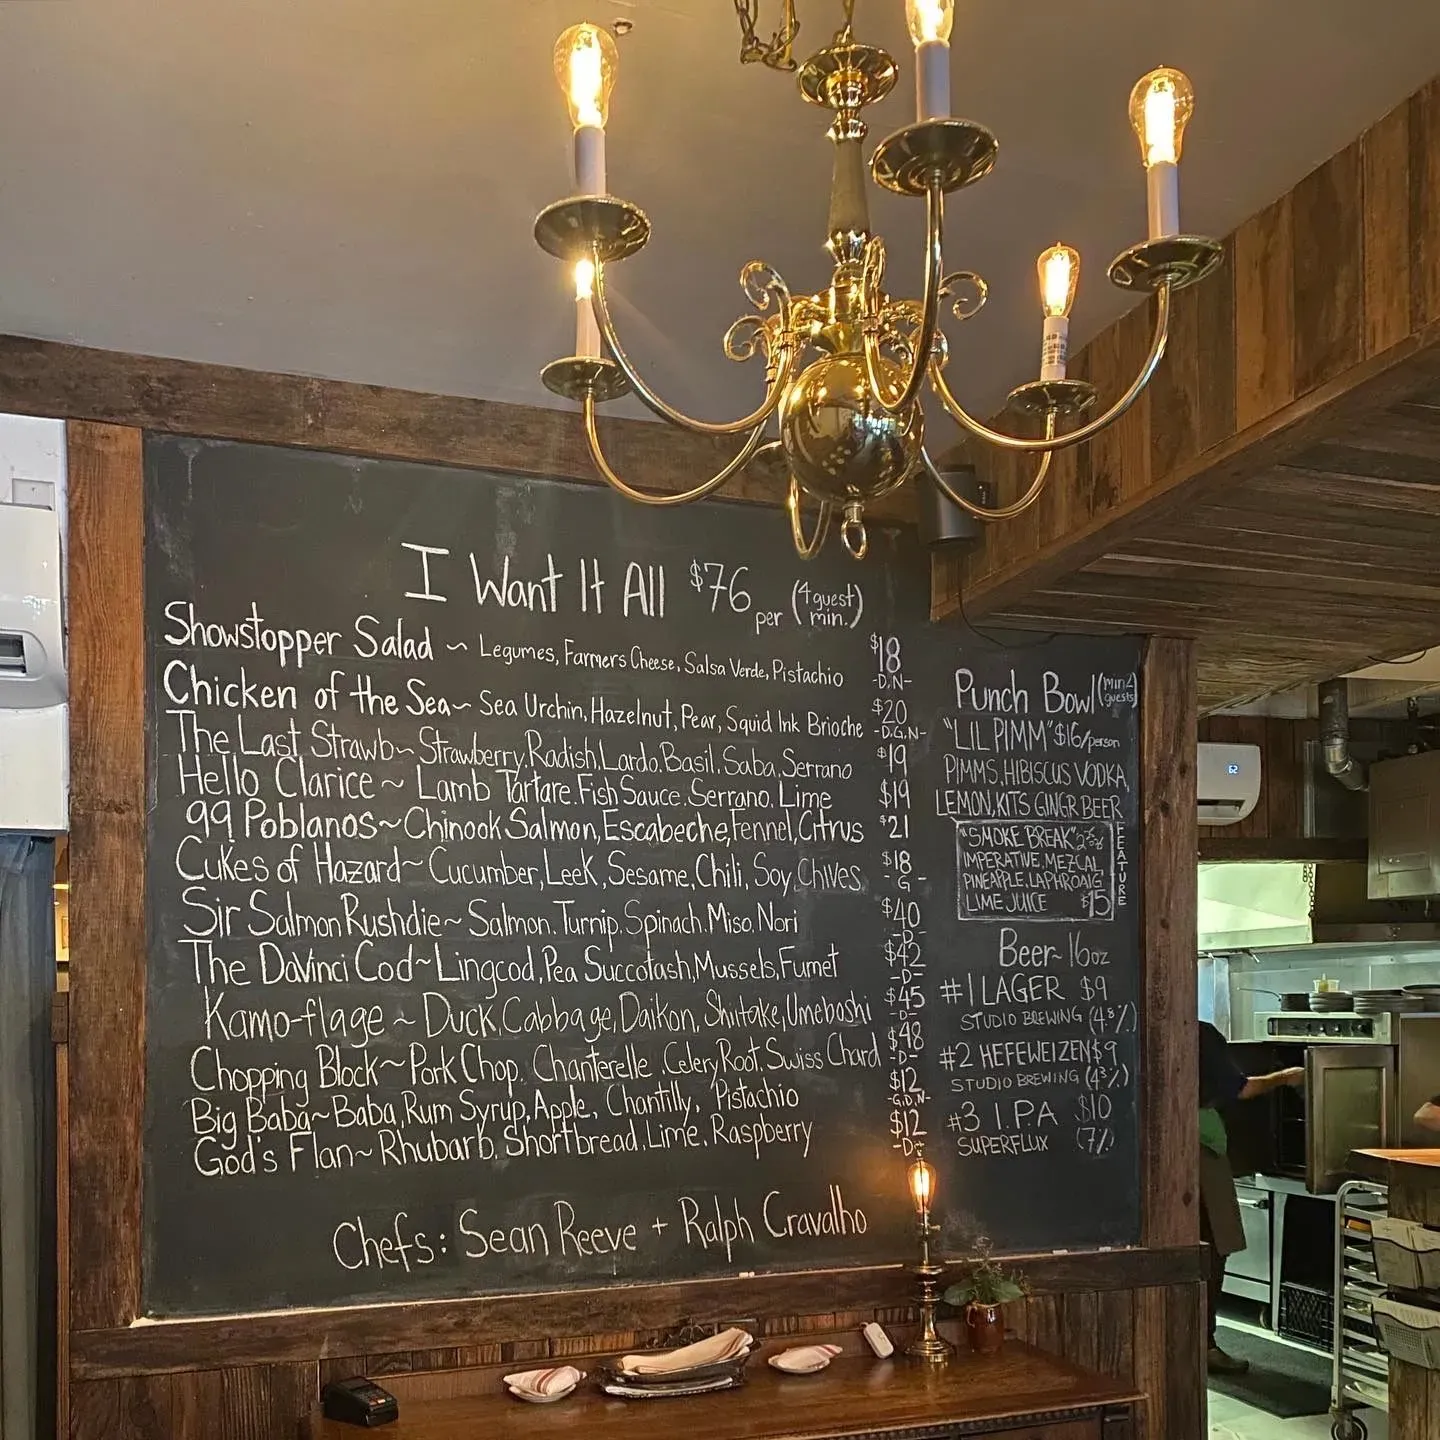 I Want It All $76 per (4 guest min.)
Showstopper Salad ~ Legumes, Farmers Cheese, Salsa Verde, Pistachio $18 -D,N-
Chicken of the Sea ~ Sea Urchin, Hazelnut, Pear, Squid Ink Brioche $20 -D,G,N-
The Last Strawb ~ Strawberry, Radish, Lardo, Basil, Saba, Serrano $19
Hello Clarice ~ Lamb Tartare, Fish Sauce, Serrano, Lime $19
99 Poblanos ~ Chinook Salmon, Escabeche, Fennel, Citrus $21
Cukes of Hazard ~ Cucumber, Leek, Sesame, Chili, Soy, Chives $18 -G-
Sir Salmon Rushdie ~ Salmon, Turnip, Spinach, Miso, Nori $40 -D-
The DaVinci Cod ~ Lingcod, Pea Succotash, Mussels, Fumet $42 -D-
Kamo-flage ~ Duck, Cabbage, Daikon, Shiitake, Umeboshi $45 -D-
Chopping Block ~ Pork Chop, Chanterelle, Celery Root, Swiss Chard $48 -D-
Big Baba ~ Baba, Rum Syrup, Apple, Chantilly, Pistachio $12 -G,D,N-
God's Flan ~ Rhubarb, Shortbread, Lime, Raspberry $12 -D-
Chefs: Sean Reeve + Ralph Cravalho
Punch Bowl (min 2 guests)
"LIL PIMM" $16/person
PIMMS, HIBISCUS VODKA,
LEMON, KITS GINGR BEER
"SMOKE BREAK"
IMPERATIVE, MEZCAL
PINEAPPLE, LAPHROAIG
LIME JUICE $15
FEATURE
Beer ~ 16oz
#1 LAGER $9
STUDIO BREWING (4.8%)
#2 HEFEWEIZEN $9
STUDIO BREWING (4.3%)
#3 I.P.A $10
SUPERFLUX (7%)